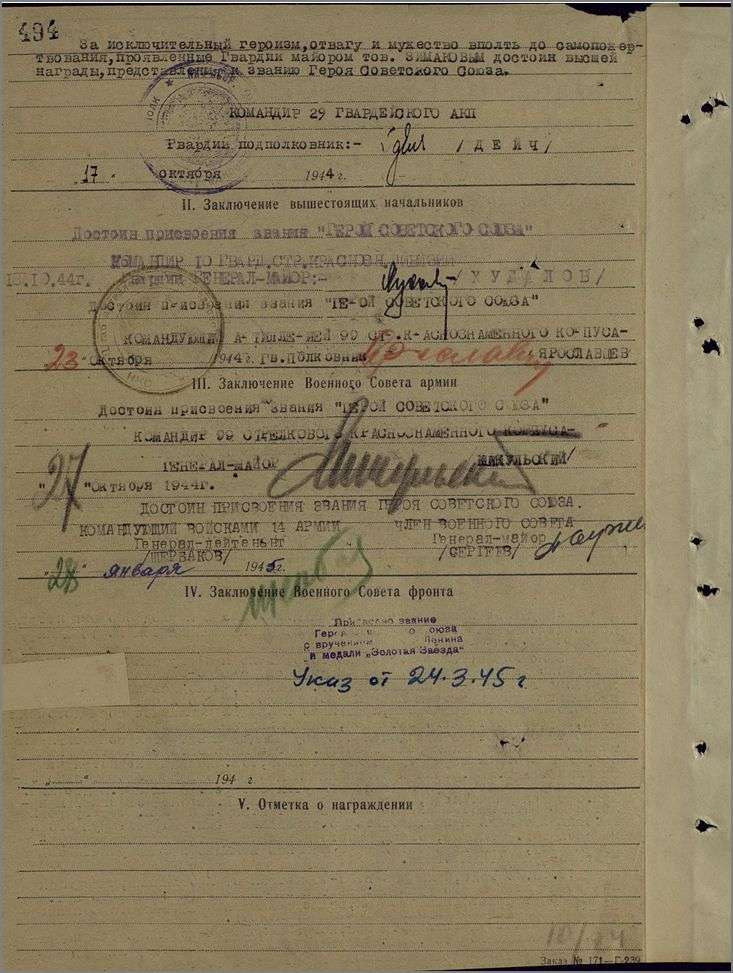 494
За исключительный героизм, отвагу и мужество вполть до самопожер-
твования, проявленные Гвардии майором тов. ЗИМАКОВЫМ достоин высшей
награды, представления к званию Героя Советского Союза.
КОМАНДИР 29 ГВАРДЕЙСКОГО АКП
Гвардии подполковник:- / Д Е Й Ч /
17 октября 1944 г.
II. Заключение вышестоящих начальников
Достоин присвоения звания "ГЕРОЙ СОВЕТСКОГО СОЮЗА"
КОМАНДИР 10 ГВАРД.СТР.КРАСНОЗН. ДИВИЗИИ
.10.44г. Гвардии ГЕНЕРАЛ-МАЙОР:- / Х У Д А Л О В /
Достоин присвоения звания "ГЕРОЙ СОВЕТСКОГО СОЮЗА"
КОМАНДУЮЩИЙ А ТИЛЛЕ ИЕЙ 99 СТР. К АСНОЗНАМЕННОГО КО ПУСА-
23 Октября 1944 г Гв. Полковник ЯРОСЛАВЦЕВ
III. Заключение Военного Совета армии
Достоин присвоения звания "ГЕРОЙ СОВЕТСКОГО СОЮЗА"
КОМАНДИР 99 СТРЕЛКОВОГО КРАСНОЗНАМЕННОГО КОРПУСА-
ГЕНЕРАЛ-МАЙОР МИКУЛЬСКИЙ/
"27" Октября 1944г.
ДОСТОИН ПРИСВОЕНИЯ ЗВАНИЯ ГЕРОЯ СОВЕТСКОГО СОЮЗА.
КОМАНДУЮЩИЙ ВОЙСКАМИ 14 АРМИИ ЧЛЕН ВОЕННОГО СОВЕТА
Генерал-лейтенант Генерал-майор
/ЩЕРБАКОВ/ /СЕРГЕЕВ/
"28" января 1945г.
IV. Заключение Военного Совета фронта
Присвоено звание
Героя оюза
с вручением Ленина
и медали „Золотая Звезда"
Указ от 24.3.45 г
„ " 194 г
V. Отметка о награждении
Заказ № 171—Г-239